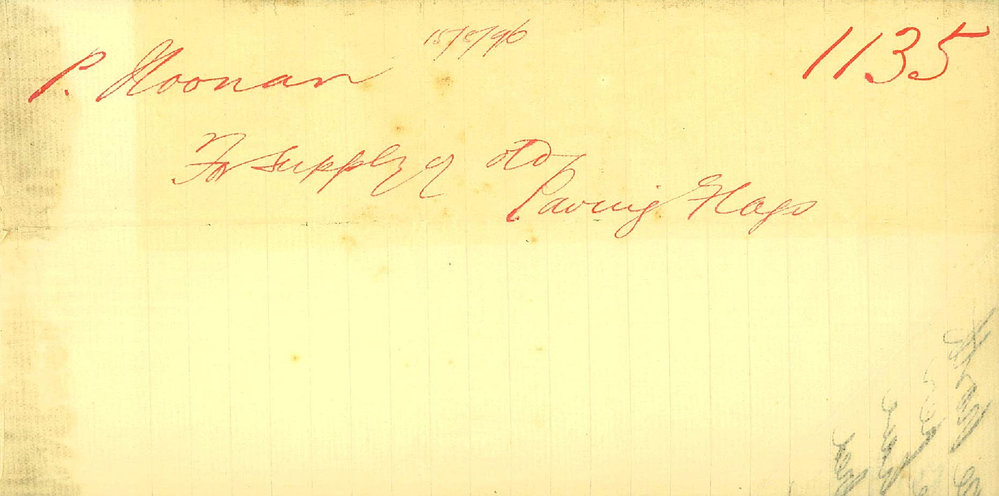 P. Noonan 15/8/96 1135
For supply of old
Paving Flags